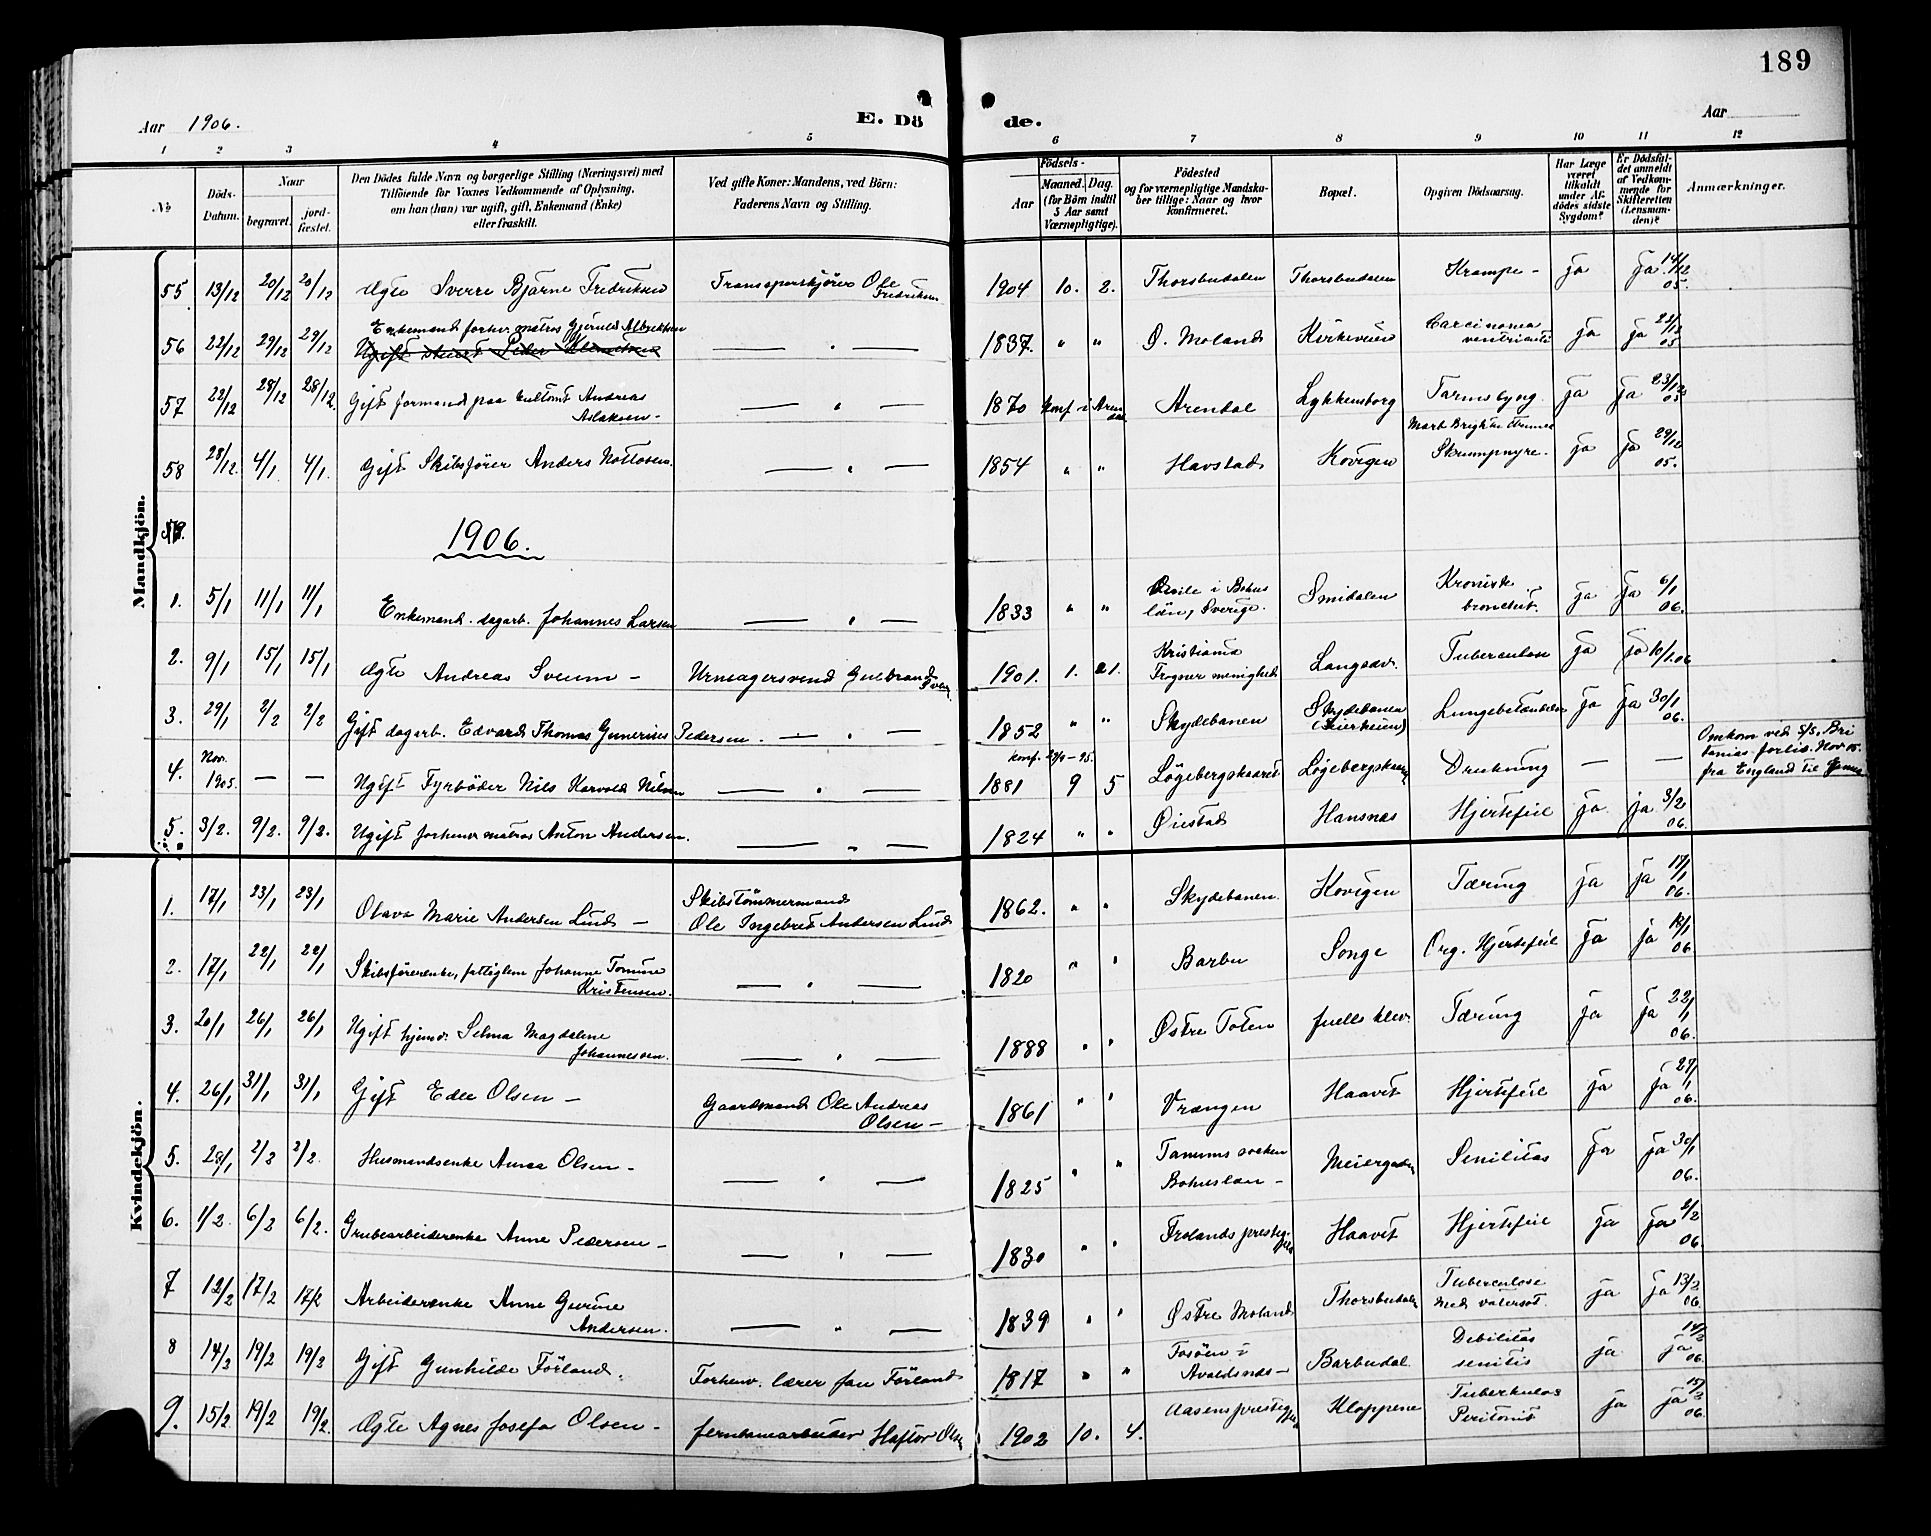 189
Aar 1906.
E. Dö de.
Aar
1 2 3 4 5 6 7 8 9 10 11 12
No
Döds-Datum.
Naar
begravet.
jord-fæstet.
Den Dödes fulde Navn og borgerlige Stilling (Næringsvei) med
Tilföiende for Voxnes Vedkommende af Oplysning,
om han (hun) var ugift, gift, Enkemand (Enke)
eller fraskilt.
Ved gifte Koner: Mandens, ved Börn:
Faderens Navn og Stilling.
Födsels-
Aar
Maaned. Dag.
(for Börn indtil
5 Aar samt
Værnepligtige).
Födested
og for værnepligtige Mandsku-
ber tillige: Naar og hvor
konfirmeret.
Bopæl.
Opgiven Dödsaarsag.
Har Læge
været
tilkaldt
under Af-
dödes sidste
Sygdom?
Er Dödsfal-
det anmeldt
af Vedkom-
mende for
Skifteretten
(Lensman-
den)?
Anmærkninger.
Mandkjön.
55 13/12 20/12 20/12 Ægte Sverre Bjarne Fredriksen Transportkjörer Ole Fredriksen 1904 10. 2. Thorsbudalen Thorsbudalen Krampe - ja ja 14/12 05.
56 22/12 29/12 29/12 Enkemand forhv. matros Gjeruld Albretsen — " — 1837. " " Ö. Moland Kirkeveien Carcinoma ventriculi ja ja 22/12 05
57 22/12 28/12 28/12. Gift formand paa Andreas Aslaksen - — " — 1870 konf i Arendal Arendal Lykkensborg Tarmslyng. ja ja 23/12 05
58 28/12. 4/1 4/1. Gift Skibsfører Anders Nottosen. — " — 1854 " " Havstad Kovigen Morb. Brigh. Skrumpnyre. ja ja 29/12 05.
1906.
1. 5/1 11/1 11/1 Enkemand. dagarb. Johannes Larsen — " — 1833 " " i Bohus län, Sverige. Smidalen Kronisk bronchit. ja ja 6/1 06.
2. 9/1 15/1 15/1 Ægte Andreas Sveum - Urmagersvend Gulbrand Sveum 1901. 1. 21. Kristiania Frogner menighed Langsæv. Tuberculose ja ja 10/1.06
3. 29/1 2/2 2/2 Gift dagarb. Edvard Thomas Gunerius Pedersen. — " — 1852 " " Skydebanen Skydebanen Lungebetændelse ja ja 30/1 06.
4. Nov. 1905. — — Ugift Fyrbøder Nils Harvold Nilsen — " — 1881 9 5 Løgebergskaaret Løgebergskaaret Drukning — — Omkom ved S/S, Bri
tanias forlis. Nov 05.
fra England til
5. 3/2. 9/2. 9/2. Ugift forhenv matros Anton Andersen. — " — 1824 " " Øiestad Hansnæs Hjertefeil ja ja 3/2 06.
Kvindekjön.
1. 17/1 23/1 23/1 Olava Marie Andersen Lund - Skibstømmermand
Ole Ingebret Andersen Lund 1862. " " Skydebanen. Kovigen Tæring ja ja 17/1 06.
2. 17/1 22/1 22/1 Skibsførerenke, fattiglem Johanne Tomine Kristensen. — " — 1820 " " Barbu Songe Org. Hjertefeil ja ja 18/1 06
3. 20/1 26/1 26/1 Ugift hjemv. Selma Magdalene Johannesen. — " — 1888 " " Østre Toten Tæring ja ja 22/1 06.
4. 26/1 31/1 31/1 Gift Edle Olsen - Gaardmand Ole Andreas Olsen - 1861 " " Vrængen Haavet Hjertefeil ja ja 27/1 06.
5. 29/1 2/2 2/2. Husmandsenke Anna Olsen - — " — 1825 " " Tanums socken Bohuslän - Meiergaden Senilitas ja ja 30/1 06.
6. 1/2. 6/2 6/2. Grubearbeiderenke Anne Pedersen - — " — 1830 " " Frolands prestegjeld Haavet Hjertefeil ja ja 2/2 06.
7 12/2 17/2 17/2 Arbeiderenke Anne Gurine Andersen. — " — 1839 " " Østre Moland Thorsbudalen Tuberculose med vatersot. ja ja 13/2 06.
8 14/2 19/2 19/2 Gift Gunhilde Förland. Forhenv. lærer Jan Förland 1817 " " Fosöen i Avaldsnes - Barbudal Debilitas senilis ja ja 14/2 06.
9. 15/2 19/2 19/2. Ægte Agnes Josefa Olsen - Jernbanearbeider Haftor Olsen 1902 10. 4. Aasens prestegjeld Kloppene Tuberkulos Peritonit ja ja 15/2 06.